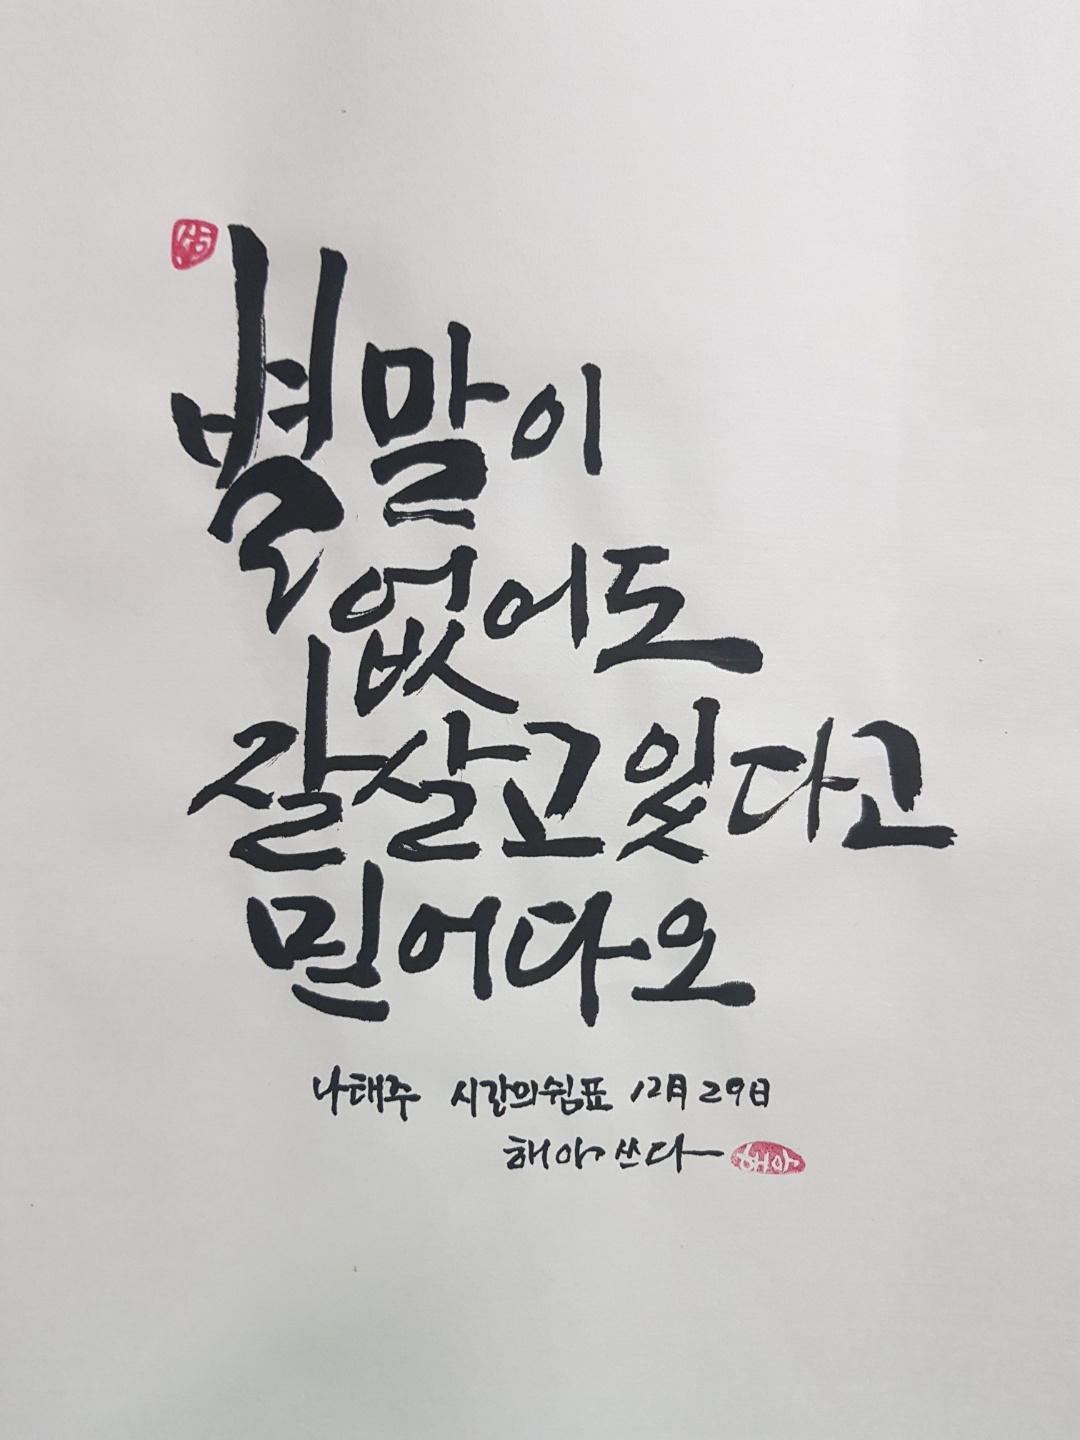 별말이
없어도
잘살고있다고
믿어다오
나태주 시간의쉼표 12月 29日
해아 쓰다
해아